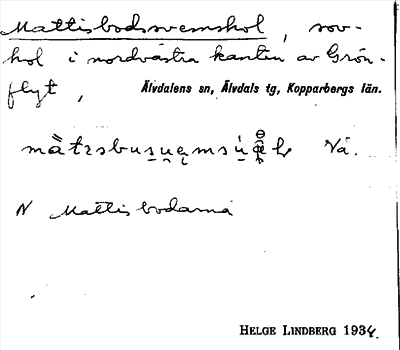 Mattisbodsvemskol, sov-
kol i nordvästra kanten av Grön-
flyt, Älvdalens sn, Älvdals tg, Kopparbergs län.
Vå.
N Mattisbodarna
HELGE LINDBERG 1934.